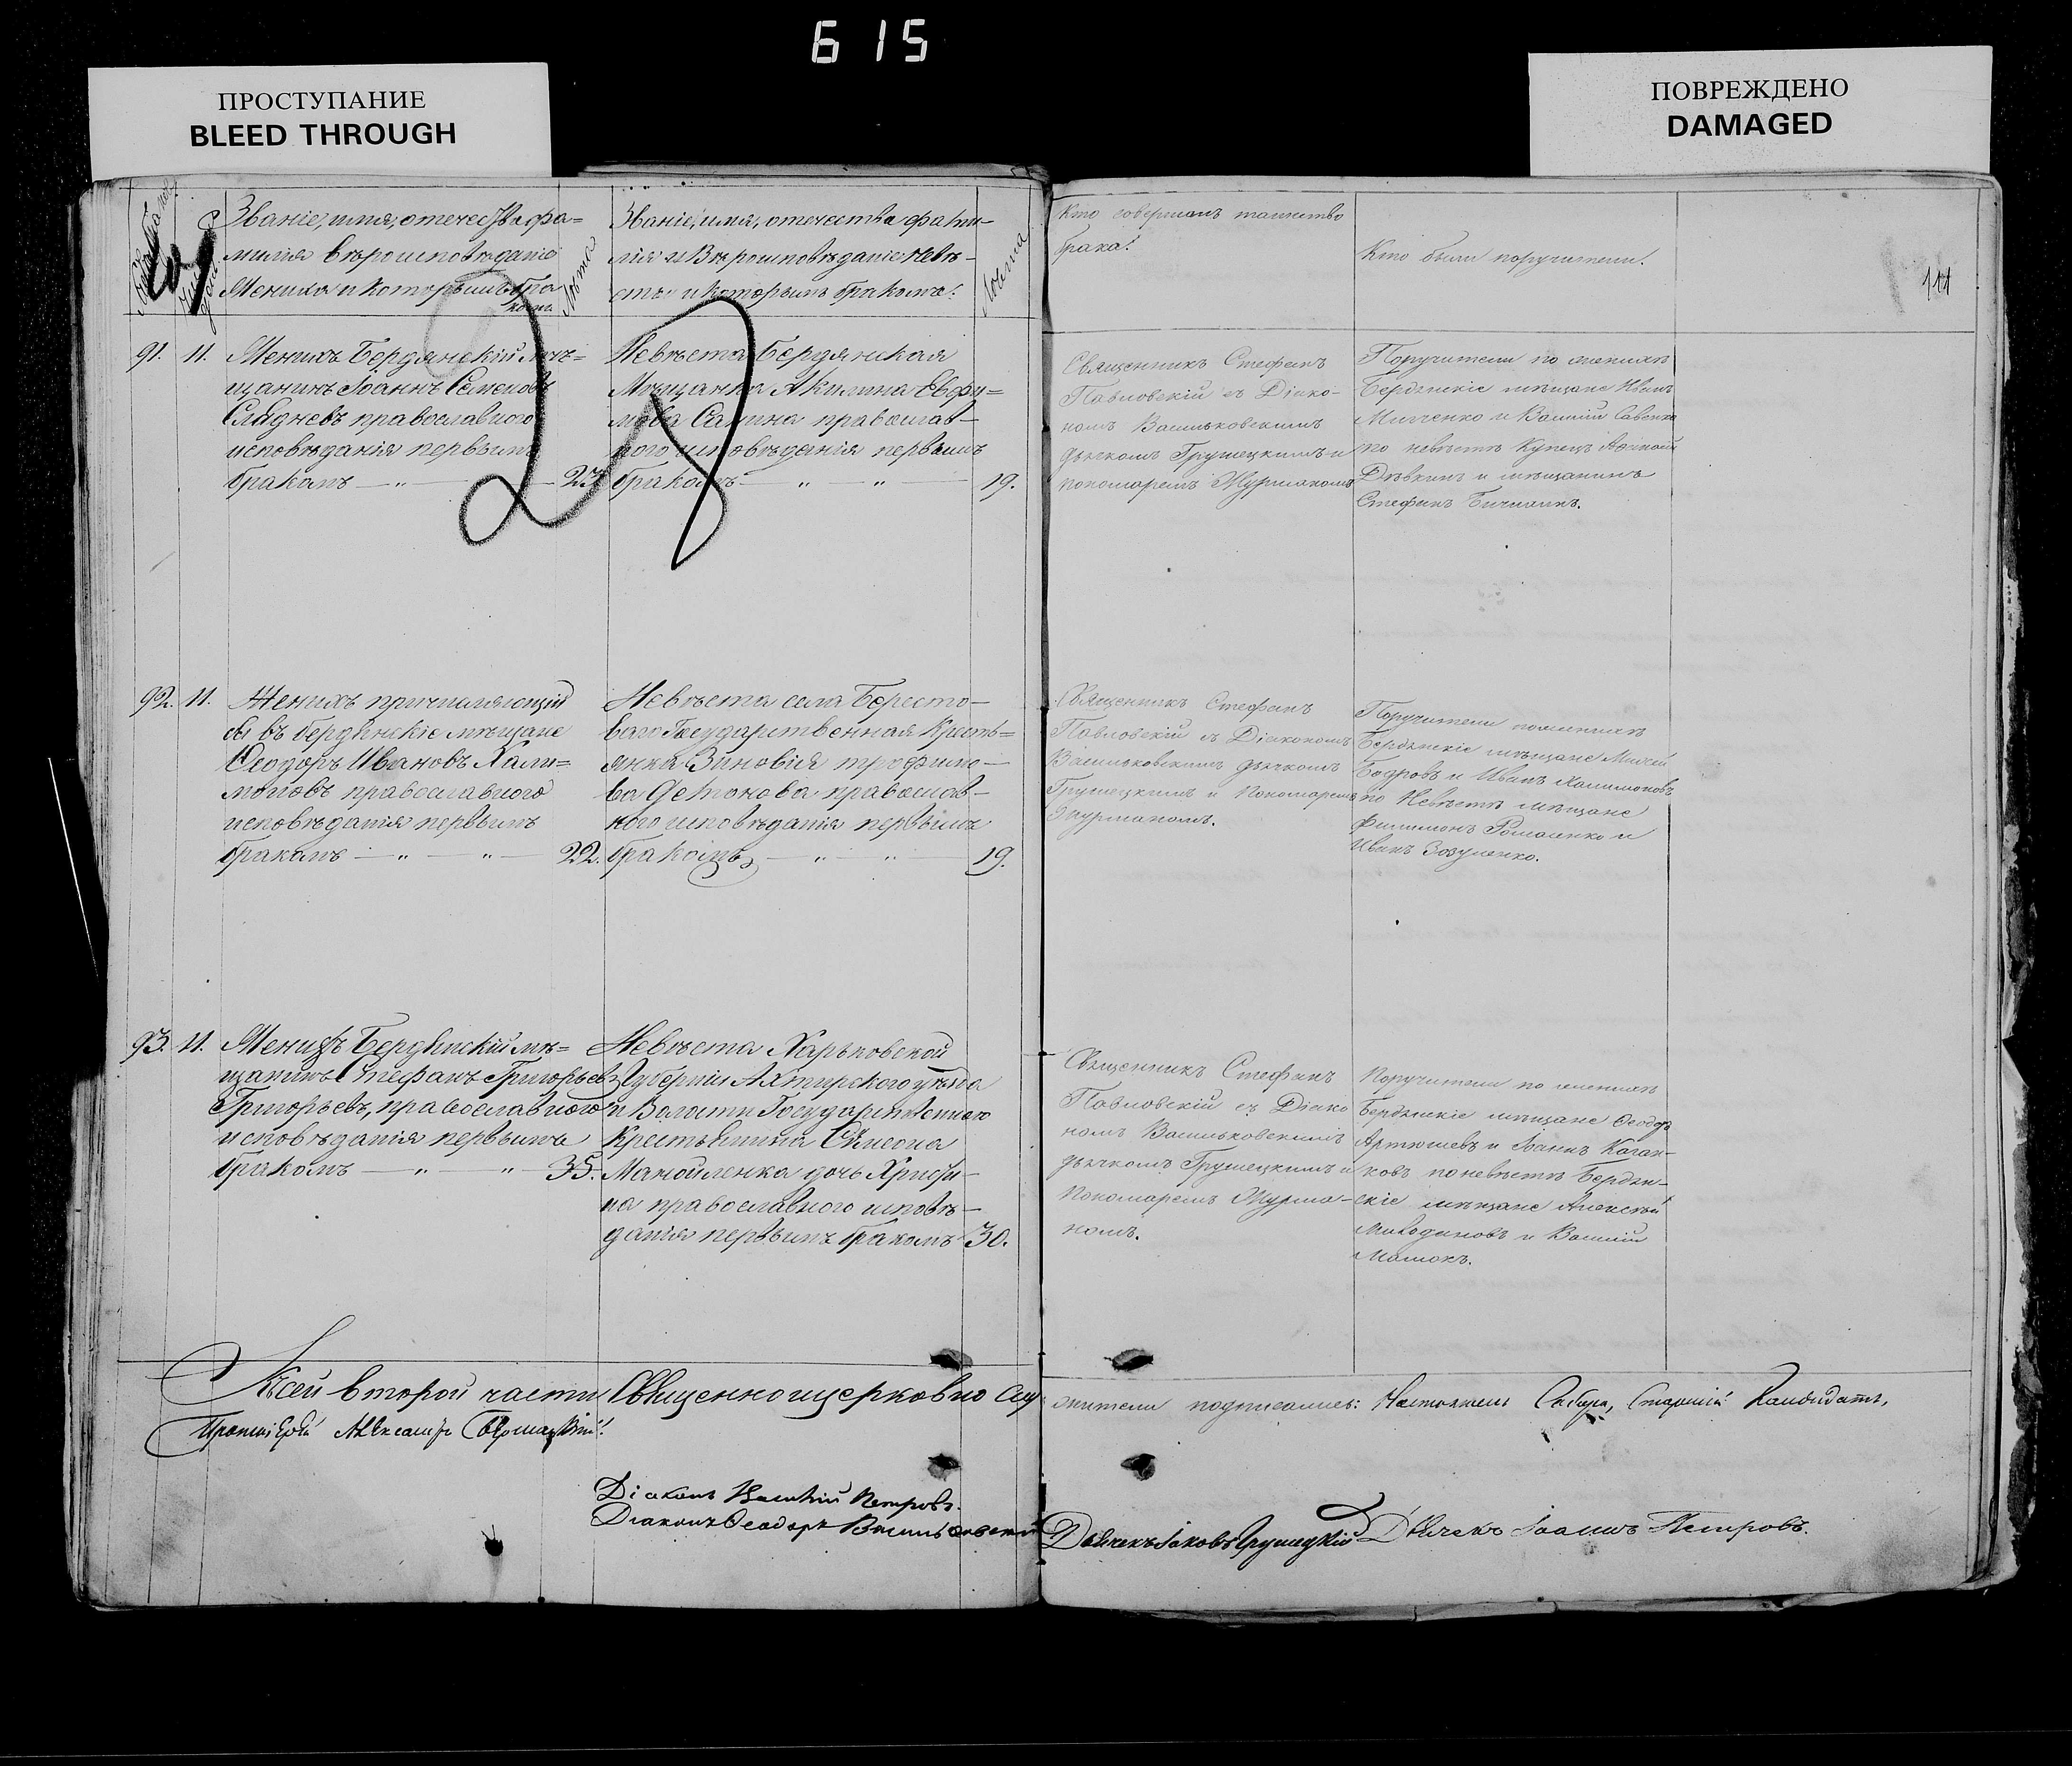 615
ПРОСТУПАНИЕ
BLEED THROUGH
ПОВРЕЖДЕНО
DAMAGED
Званіе, имя, отечество, фа=
милія вѣроисповѣданіе
Жениха и которымъ бра
комъ.
Лѣта
Званіе, имя, отечество фами-
лія и Вѣроисповѣданіе Невѣ-
сты и которымъ бракомъ.
Лѣта
Кто совершалъ таинство
брака.
Кто были поручители.
111
28
91. 11. Женихъ Бердянскій мѣ=
щанинъ Іоаннъ Семеновъ
Сладневъ православнаго
исповѣданія первымъ
бракомъ — „ — 23
Невѣста Бердянская
Мѣщанка Акилина Ефи=
мова Санина православ-
ного исповѣданія первымъ
бракомъ — „ — „ — 19.
Священникъ Стефанъ
Павловскій съ Діако-
номъ Васильковскимъ
дьячкомъ Грушецкимъ и
пономаремъ
Поручители по женихѣ
Бердянскіе мѣщане Иванъ
и Василій
по невѣстѣ Купецъ
и мѣщанинъ
Стефанъ
92. 11. Женихъ причисляющій
ся въ бердянскіе мѣщане
Ѳеодоръ Ивановъ Хали=
моновъ православного
исповѣданія первымъ
бракомъ — „ — „ — 22.
Невѣста села Бересто-
ваго Государственная Кресть=
янка Зиновія трофимо-
ва православ-
ного исповѣданія первымъ
бракомъ — „ — „ — 19.
Священникъ Стефанъ
Павловскій съ Діакономъ
Васильковскимъ дьячкомъ
Грушецкимъ и Пономаремъ
Поручители по женихѣ
Бердянскіе мѣщане
Бодровъ и Иванъ Халимоновъ
по Невѣстѣ мѣщане
Филимонъ и
Иванъ Зозуленко.
93. 11. Женихъ Бердянскій мѣ=
щанинъ Стефанъ Григорьевъ
Григорьевъ, православного
исповѣданія первымъ
бракомъ — „ — „ — 35.
Невѣста Харьковской
Губерніи Ахтирского уѣзда
Государственного
Крестьянина Симеона
Манойленка дочь Христи-
на православного исповѣ-
данія первымъ бракомъ 30.
Священникъ Стефанъ
Павловскій съ Діако
номъ Васильковскимъ
дьячкомъ Грушецкимъ и
Пономаремъ
номъ.
Поручители по женихѣ
Бердянскіе мѣщане Ѳеодоръ
Артюшевъ и Іоаннъ Каган-
ковъ по невѣстѣ Бердян-
скіе мѣщане Алексѣй
и Василій
Къ сей второй части Священно и церковно слу
жители подписались: Настоятель Собора, Старшій Кандидатъ,
Протоіерей Александръ
Діаконъ Василій Петровъ.
Діаконъ Ѳеодоръ Васильковскій
Дьячекъ Іаковъ Грушецкій
Дьячекъ Іоаннъ Петровъ.